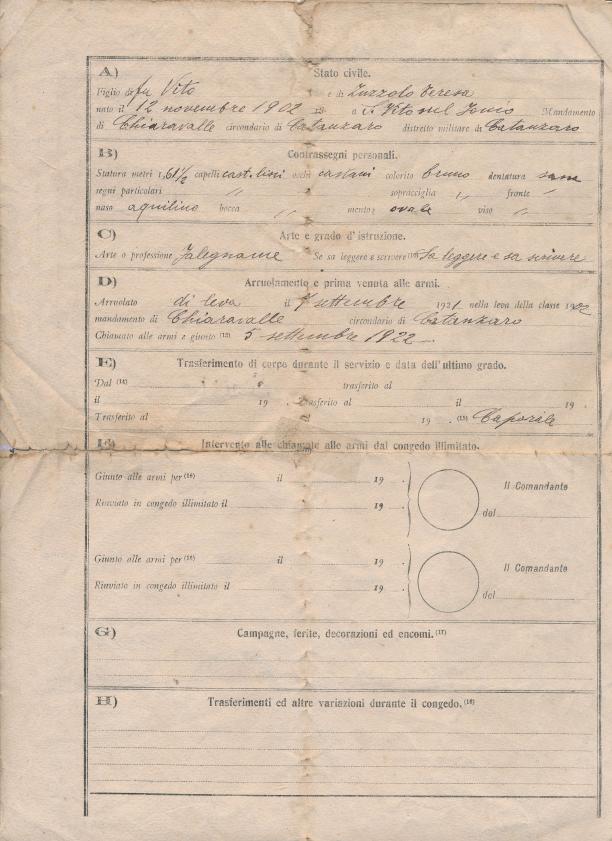 A) Stato civile.
Figlio di fu Vito e di Zuzzolo Teresa
nato il 12 novembre 1902 a S. Vito sul Jonio Mandamento
di Chiaravalle circondario di Catanzaro distretto militare di Catanzaro
B) Contrassegni personali.
Statura metri 1,61½ capelli castani occhi castani colorito bruno dentatura sana
segni particolari " sopracciglia " fronte "
naso aquilino bocca " mento ovale viso "
C) Arte e grado d'istruzione.
Arte o professione Falegname Se sa leggere e scrivere Sa leggere e sa scrivere
D) Arruolamento e prima venuta alle armi.
Arruolato di leva il 7 settembre 1921 nella leva della classe 1902
mandamento di Chiaravalle circondario di Catanzaro
Chiamato alle armi e giunto (12) 5 settembre 1922
E) Trasferimento di corpo durante il servizio e data dell'ultimo grado.
Dal (14) trasferito al
il 19 . trasferito al il 19 .
Trasferito al 19 . (15) Caporale
F) Intervento alle chiamate alle armi dal congedo illimitato.
Giunto alle armi per (16) il 19 . Il Comandante
Rinviato in congedo illimitato il 19 . del
Giunto alle armi per (16) il 19 . Il Comandante
Rinviato in congedo illimitato il 19 . del
G) Campagne, ferite, decorazioni ed encomi. (17)
H) Trasferimenti ed altre variazioni durante il congedo. (18)